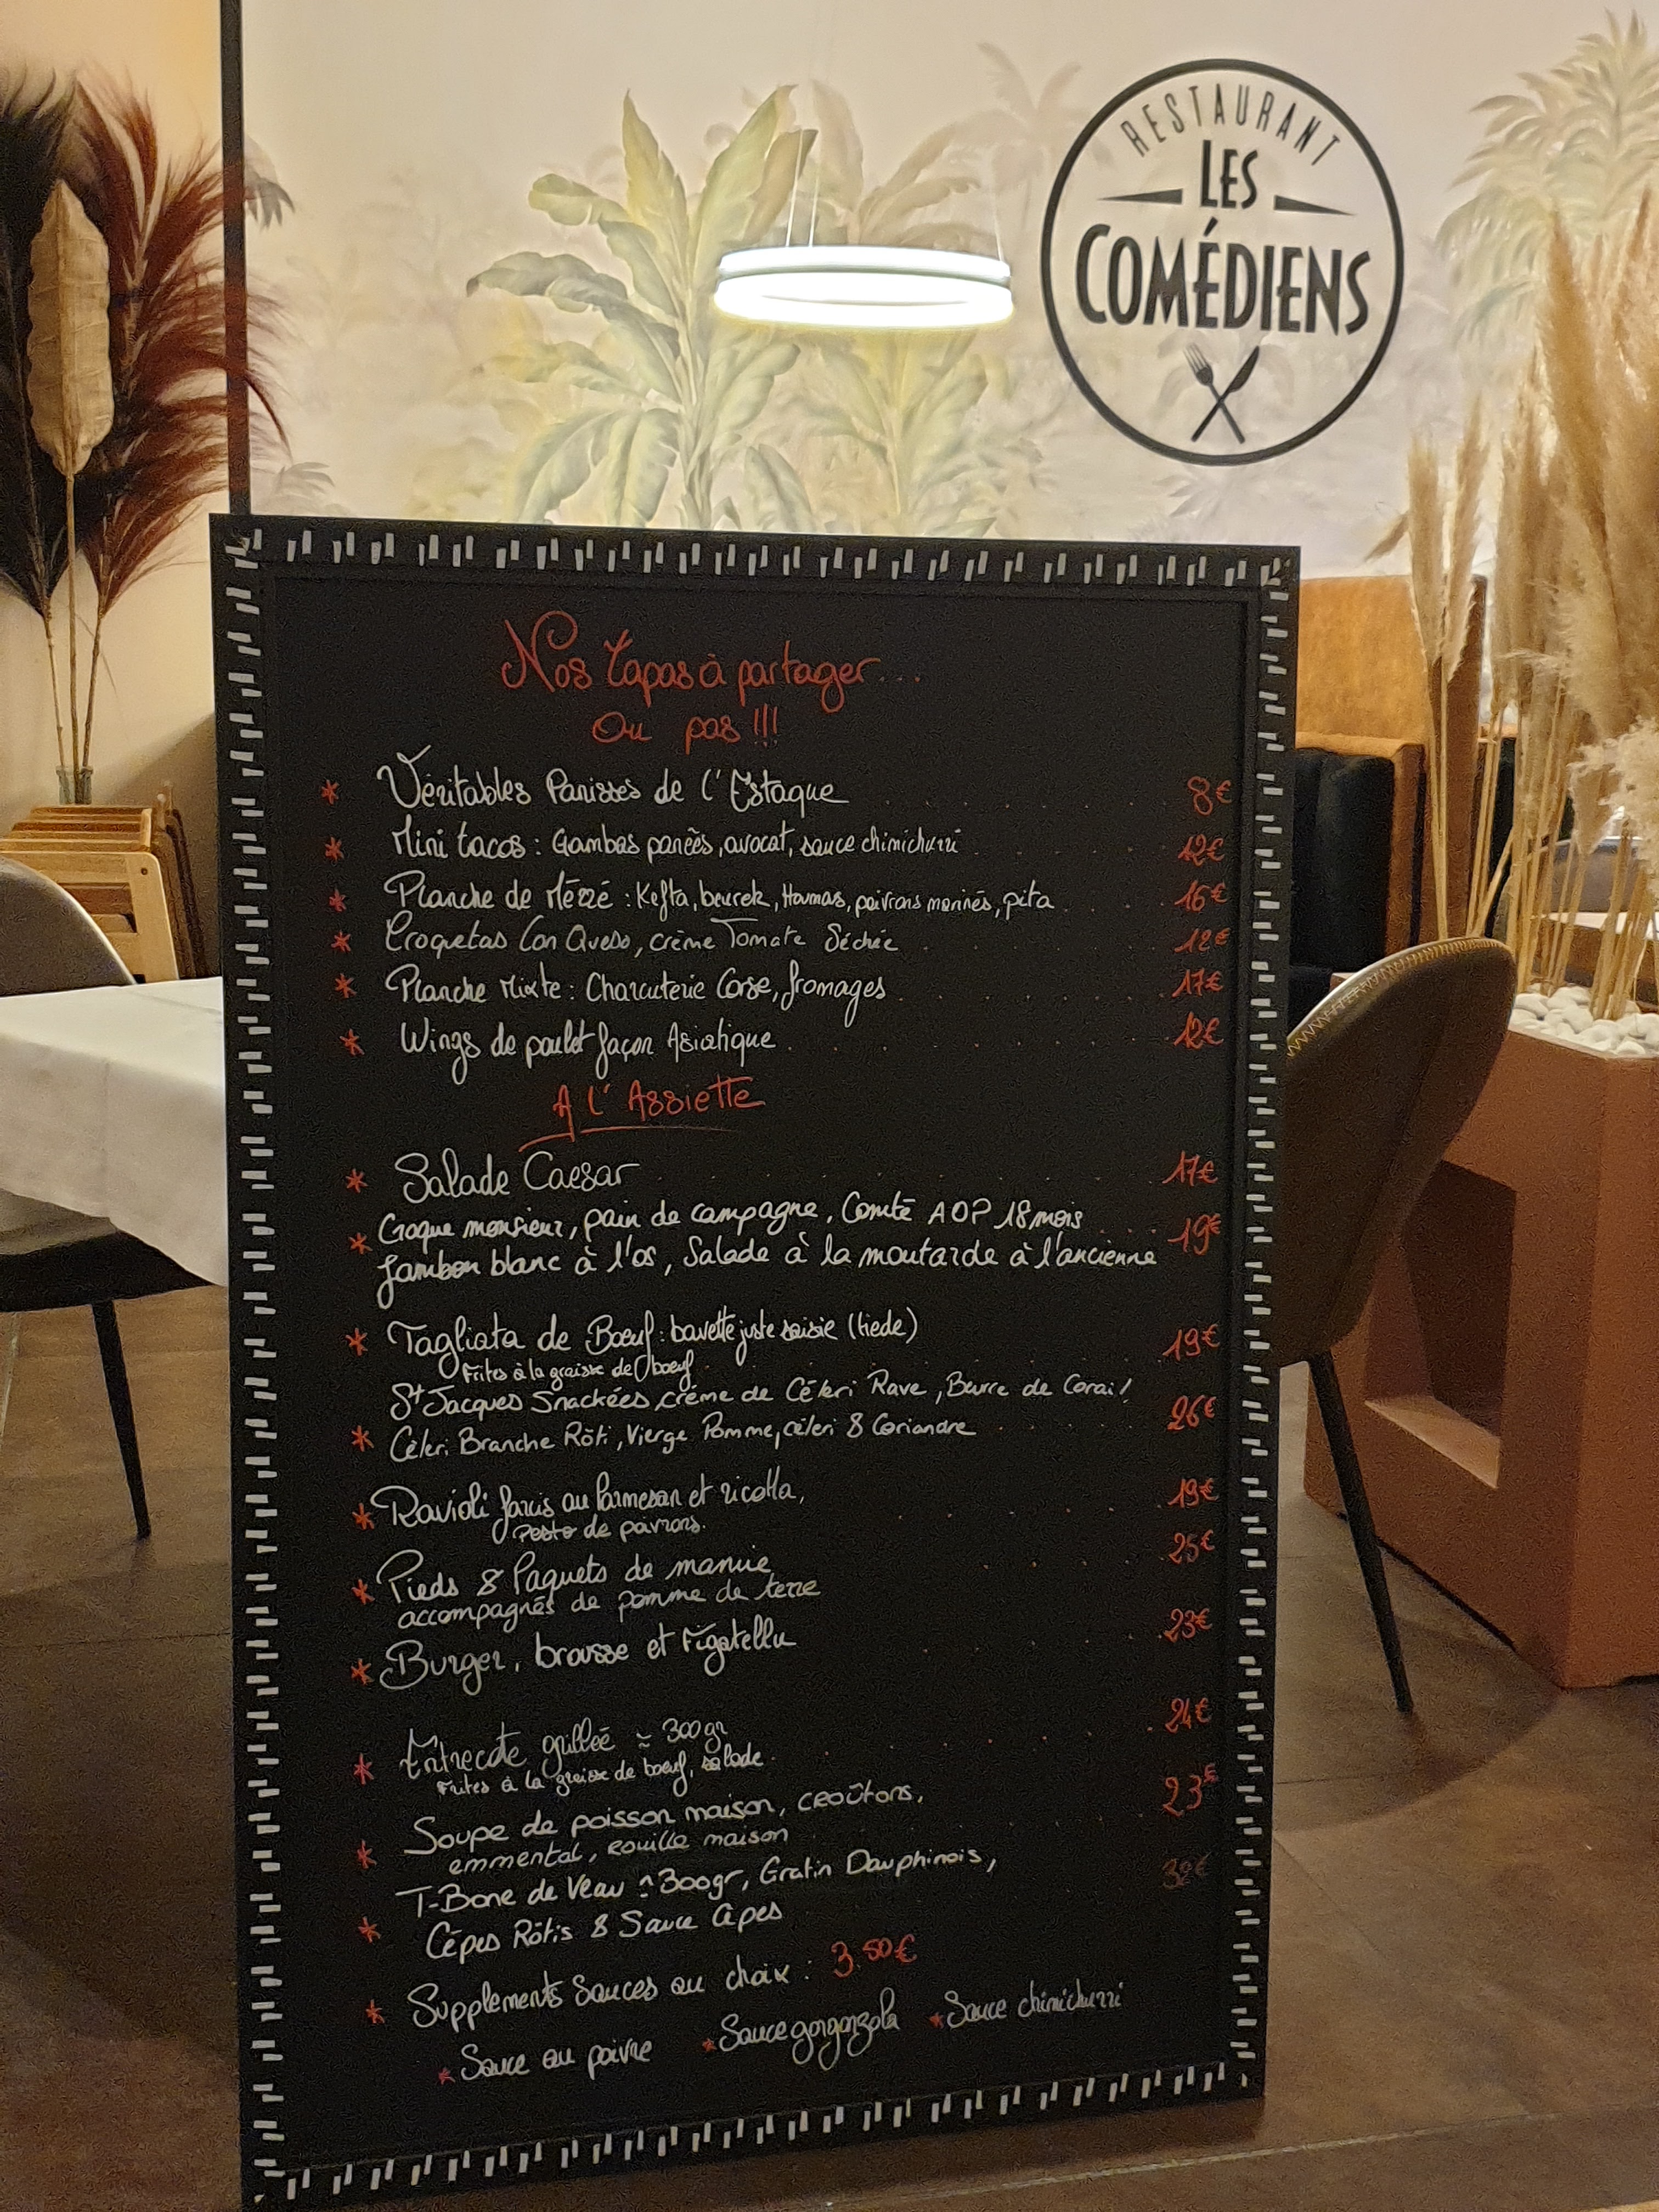 RESTAURANT
LES
COMÉDIENS
Nos Tapas à partager...
Ou pas !!!
* Véritables Panisses de l'Estaque 8€
* Mini tacos : Gambas panées, avocat, sauce chimichurri 12€
* Planche de Mézzé : Kefta, beurek, Houmas, poivrons marinés, pita 16€
* Croquetas Con Queso, crème Tomate Séchée 12€
* Planche Mixte : Charcuterie Corse, fromages 17€
* Wings de poulet façon Asiatique 12€
A L'Assiette
* Salade Caesar 17€
* Croque monsieur, pain de campagne, Comté AOP 18 mois 19€
Jambon blanc à l'os, Salade à la moutarde à l'ancienne
* Tagliata de Bœuf : bavette juste saisie (tiede) 19€
Frites à la graisse de boeuf
St Jacques Snackées, crème de Céleri Rave, Beurre de Corail
* Céleri Branche Rôti, Vierge Pomme, céleri & Coriandre 26€
* Ravioli farcis au Parmesan et ricotta, 19€
Pesto de poivrons.
* Pieds & Paquets de mamie 25€
accompagnés de pomme de terre
* Burger, brousse et Figatellu 23€
* Entrecote grillée ≃ 300gr 24€
Frites à la graisse de boeuf, salade
* Soupe de poisson maison, croûtons, 23€
emmental, rouille maison
T-Bone de Veau ≃ 300gr, Gratin Dauphinois,
* Cèpes Rôtis & Sauce Cèpes
* Supplements Sauces au choix : 3.50€
* Sauce au poivre * Sauce gorgonzola * Sauce chimichurri